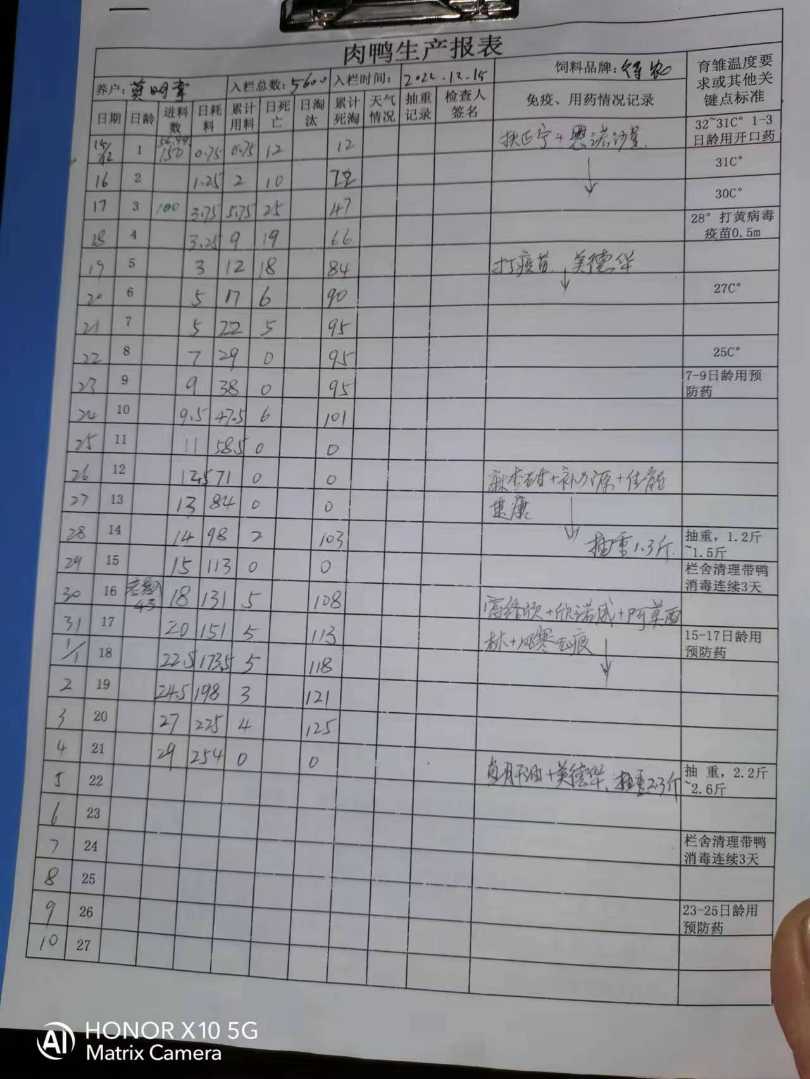 肉鸭生产报表
养户: 入栏总数:5600 入栏时间:2022.12.15 饲料品牌: 育雏温度要求或其他关键点标准
日期 日龄 进料数 日耗料 累计用料 日死亡 日淘汰 累计死淘 天气情况 抽重记录 检查人签名 免疫、用药情况记录
15/12 1 150 0.75 0.75 12 12 32~31C° 1-3日龄用开口药
16 2 1.25 2 10 31C°
17 3 100 3.75 5.75 25 47 30C°
18 4 3.25 9 19 66 28° 打黄病毒疫苗0.5m
19 5 3 12 18 84 打疫苗
20 6 5 17 6 90 27C°
21 7 5 22 5 95
22 8 7 29 0 95 25C°
23 9 9 38 0 95 7-9日龄用预防药
24 10 9.5 47.5 6 101
25 11 11 58.5 0 0
26 12 12.5 71 0 0
27 13 13 84 0 0
28 14 14 98 2 103 抽重1.3斤 抽重,1.2斤~1.5斤
29 15 15 113 0 0 栏舍清理带鸭消毒连续3天
30 16 18 131 5 108
31 17 20 151 5 113 15-17日龄用预防药
1/1 18 22.5 173.5 5 118
2 19 24.5 198 3 121
3 20 27 225 4 125
4 21 29 254 0 0
5 22 抽重2.3斤 抽 重,2.2斤~2.6斤
6 23
7 24 栏舍清理带鸭消毒连续3天
8 25
9 26 23-25日龄用预防药
10 27
AI HONOR X10 5G
Matrix Camera